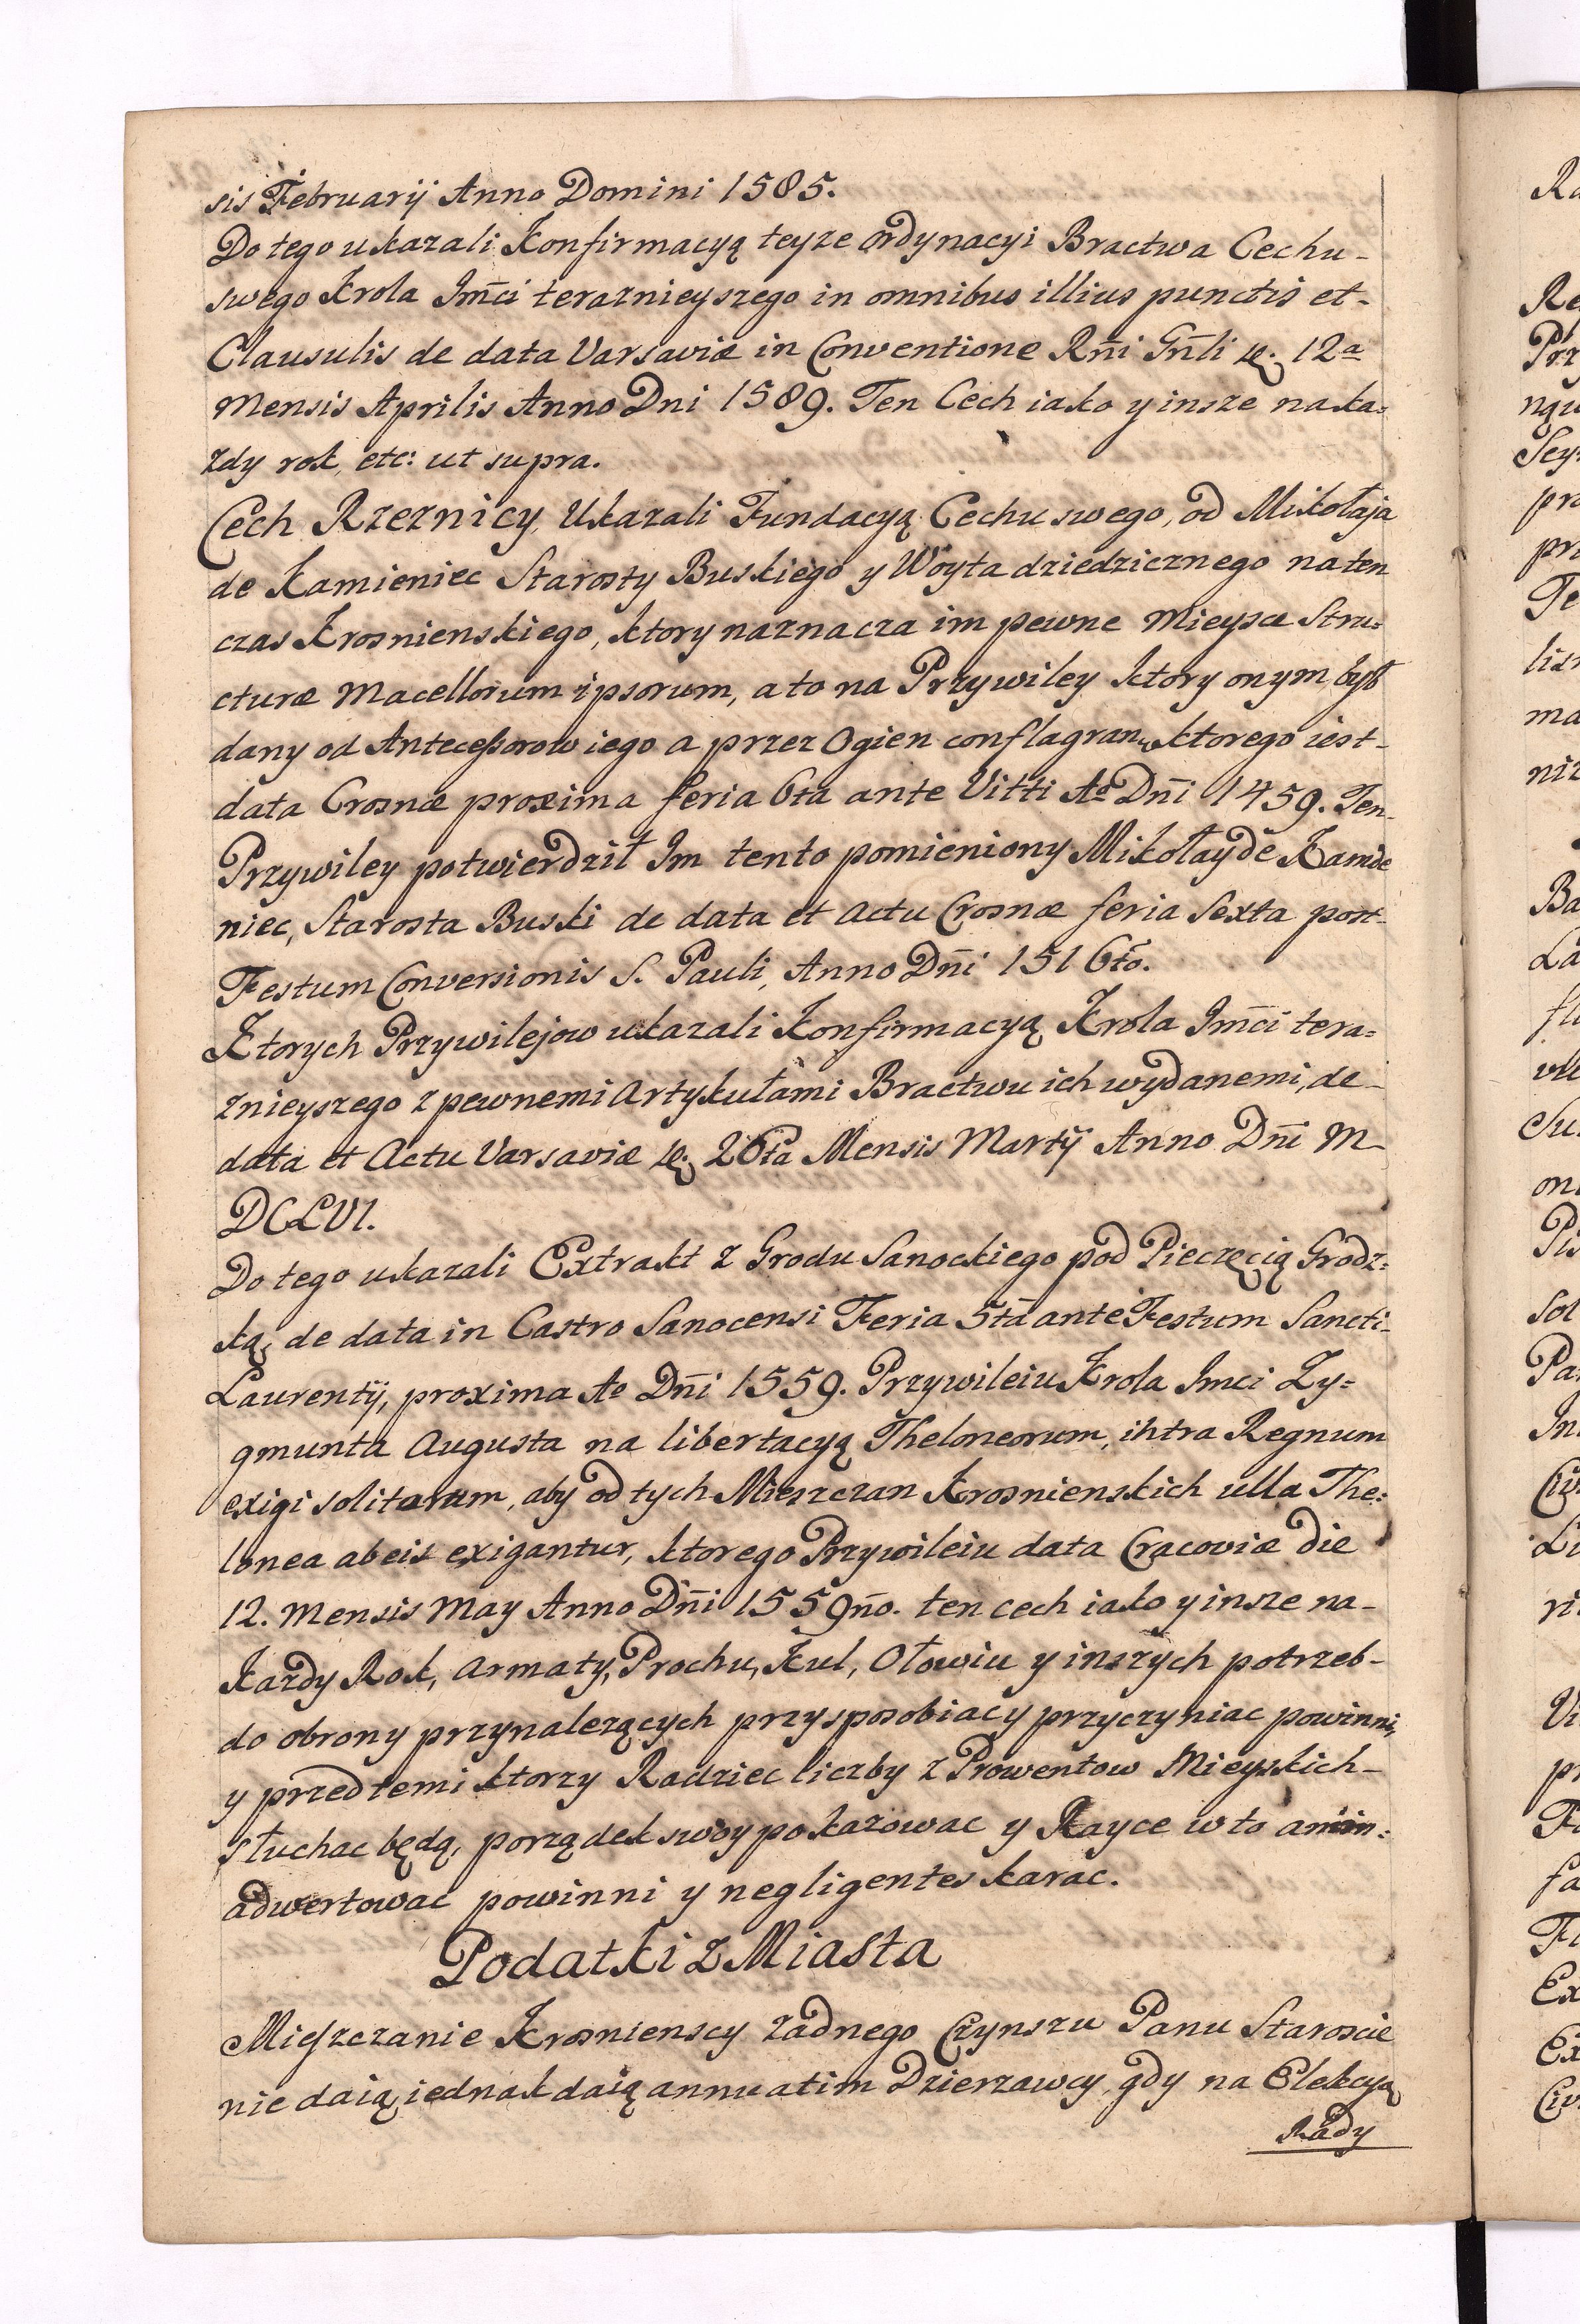 sis Februarij Anno Domini 1585.
Do tego ukazali Konfirmacyą teyze ordynacyi Bractwa Cechu-
swego Krola Jm̃ci teraznieyszego in omnibus illius punctis et-
Clausulis de data Varsaviæ in Conventione Rñi Gñli 12a
Mensis Aprilis Anno Dni 1589. Ten Cech iako y insze na ka=
zdy rok, etc: ut supra.
Cech Rzeznicy, Ukazali Fundacyą Cechu swego, od Mikołaja
de Kamieniec Starosty Buskiego y Woyta dziedzicznego na ten
czas Krosnienskiego, ktory naznacza im pewne Mieysce Stru=
cturæ Macellorum ipsorum, a to na Przywiley ktory onym był
dany od Antecessorow iego a przez Ogien conflagran, ktorego iest-
data Crosnæ proxima feria 6ta ante Vitti Ao Dñi 1459. Ten-
Przywiley potwierdził Im tento pomieniony Mikołay de Kamie
niec, Starosta Buski de data et Actu Crosnæ feria Sexta post-
Festum Conversionis S. Pauli, Anno Dñi 1516to.
Ktorych Przywilejow ukazali Konfirmacyą Krola Jm̃ci tera=
znieyszego z pewnemi Artykułami Bractwu ich wydanemi, de-
data et Actu Varsaviæ 26ta Mensis Martij Anno Dñi M-
DCLVI.
Do tego ukazali Extrakt z Grodu Sanockiego pod Pieczęcią Grodz=
ką, de data in Castro Sanocensi Feria 5tã ante Festum Sancti-
Laurentij, proxima Ao Dñi 1559. Przywileiu Krola Jmci Zy=
gmunta Augusta na libertacyą Theloneorum, intra Regnum
exigi solitarum, aby od tych Mieszczan Krosnienskich ulla The=
lonea ab eis exigantur, ktorego Przywileiu data Cracoviæ die
12. Mensis May Anno Dñi 1559ño. ten cech iako y insze na-
Kazdy Rok, Armaty, Prochu, Kul, Ołowiu y inszych potrzeb-
do obrony przynalezących przysposobiac y przyczyniac powinni,
y przed temi ktorzy Radziec liczby z Prowentow Mieyskich-
słuchac będą, porządek swoy pokazowac y Rayce w to anim=
adwertowac powinni y negligentes karac.
Podatki z Miasta
Mieszczanie Krosnienscy zadnego Czynszu Panu Staroscie
nie daią, iednak daią annuatim Dzierzawcy, gdy na Elekcyą
Rady